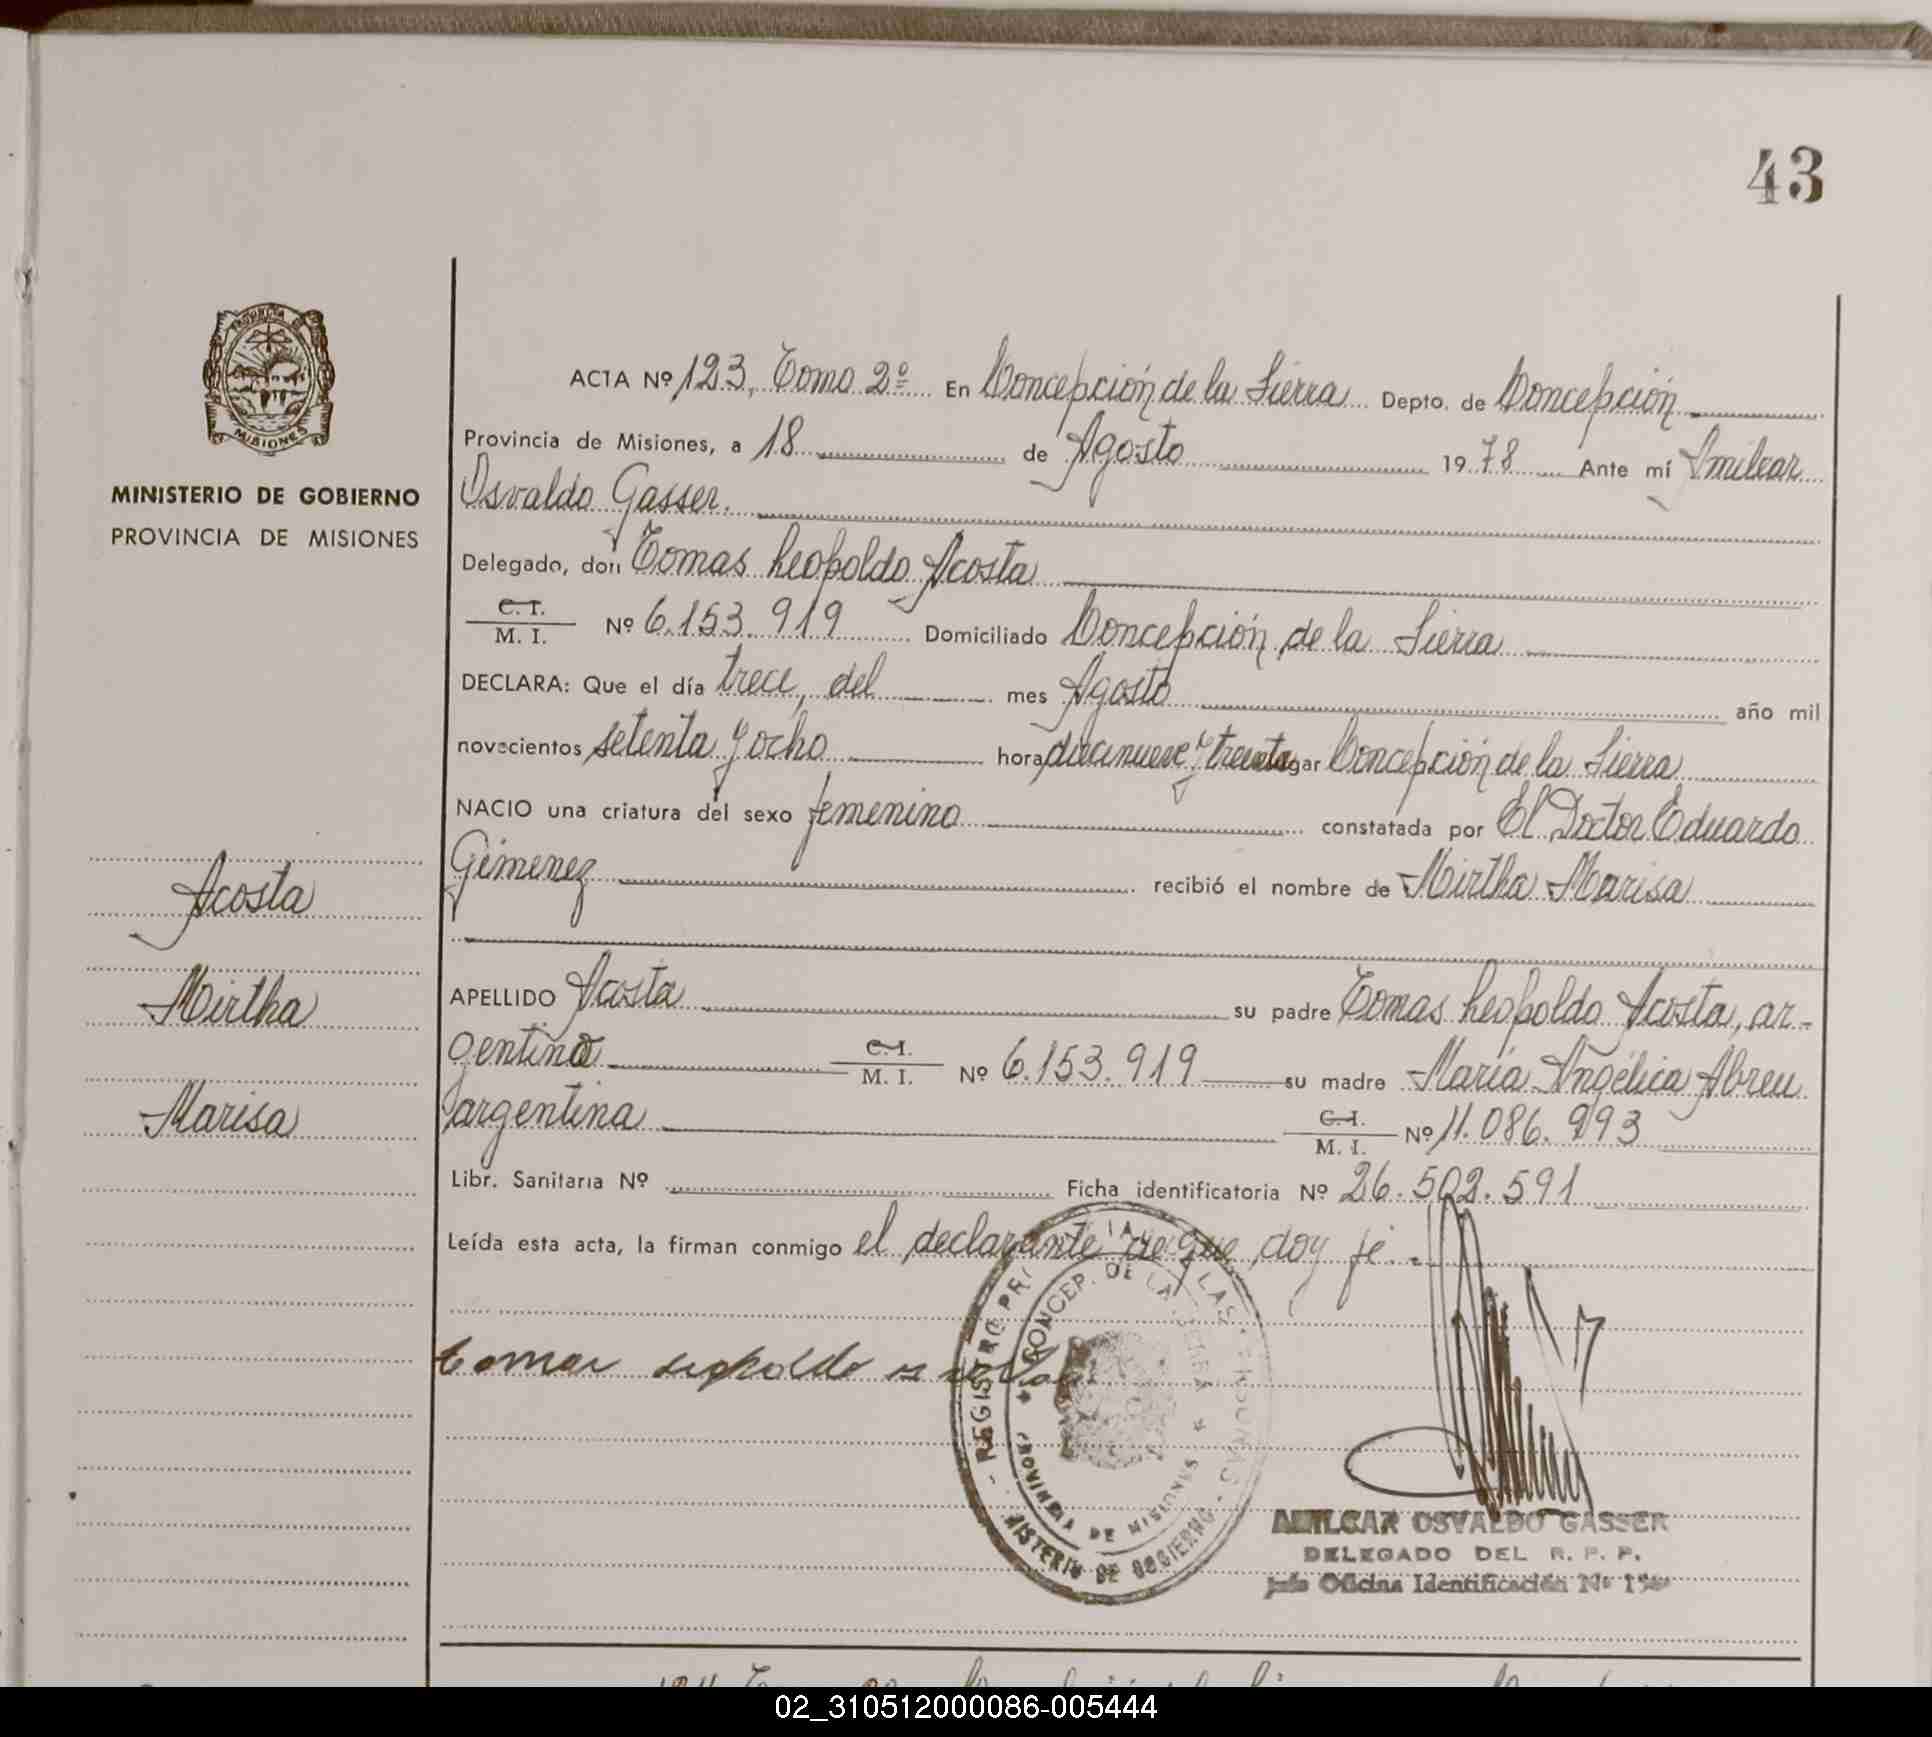 43
PROVINCIA DE
MISIONES
MINISTERIO DE GOBIERNO
PROVINCIA DE MISIONES
Acosta
Mirtha
Marisa
ACTA Nº 123, Tomo 2º En Concepción de la Sierra Depto. de Concepción
Provincia de Misiones, a 18 de Agosto 1978 Ante mí Amilcar
Osvaldo Gasser.
Delegado, don Tomas Leopoldo Acosta
C. I.
M. I. Nº 6.153.919 Domiciliado Concepción de la Sierra
DECLARA: Que el día trece, del mes Agosto año mil
novecientos setenta y ocho hora diecinueve y treinta lugar Concepción de la Sierra
NACIO una criatura del sexo femenino constatada por El Doctor Eduardo
Gimenez recibió el nombre de Mirtha Marisa
APELLIDO Acosta su padre Tomas Leopoldo Acosta, ar-
gentino C. I. M. I. Nº 6.153.919 su madre María Angélica Abreu
argentina C. I. M. I. Nº 11.086.993
Libr. Sanitaria Nº Ficha identificatoria Nº 26.502.591
Leída esta acta, la firman conmigo el declarante de que doy fé.-
REGISTRO PROVINCIAL DE LAS PERSONAS
CONCEP. DE LA SIERRA
PROVINCIA DE MISIONES
MINISTERIO DE GOBIERNO
Tomas Leopoldo
AMILCAR OSVALDO GASSER
DELEGADO DEL R. P. P.
Jefe Oficina Identificación Nº
02_310512000086-005444